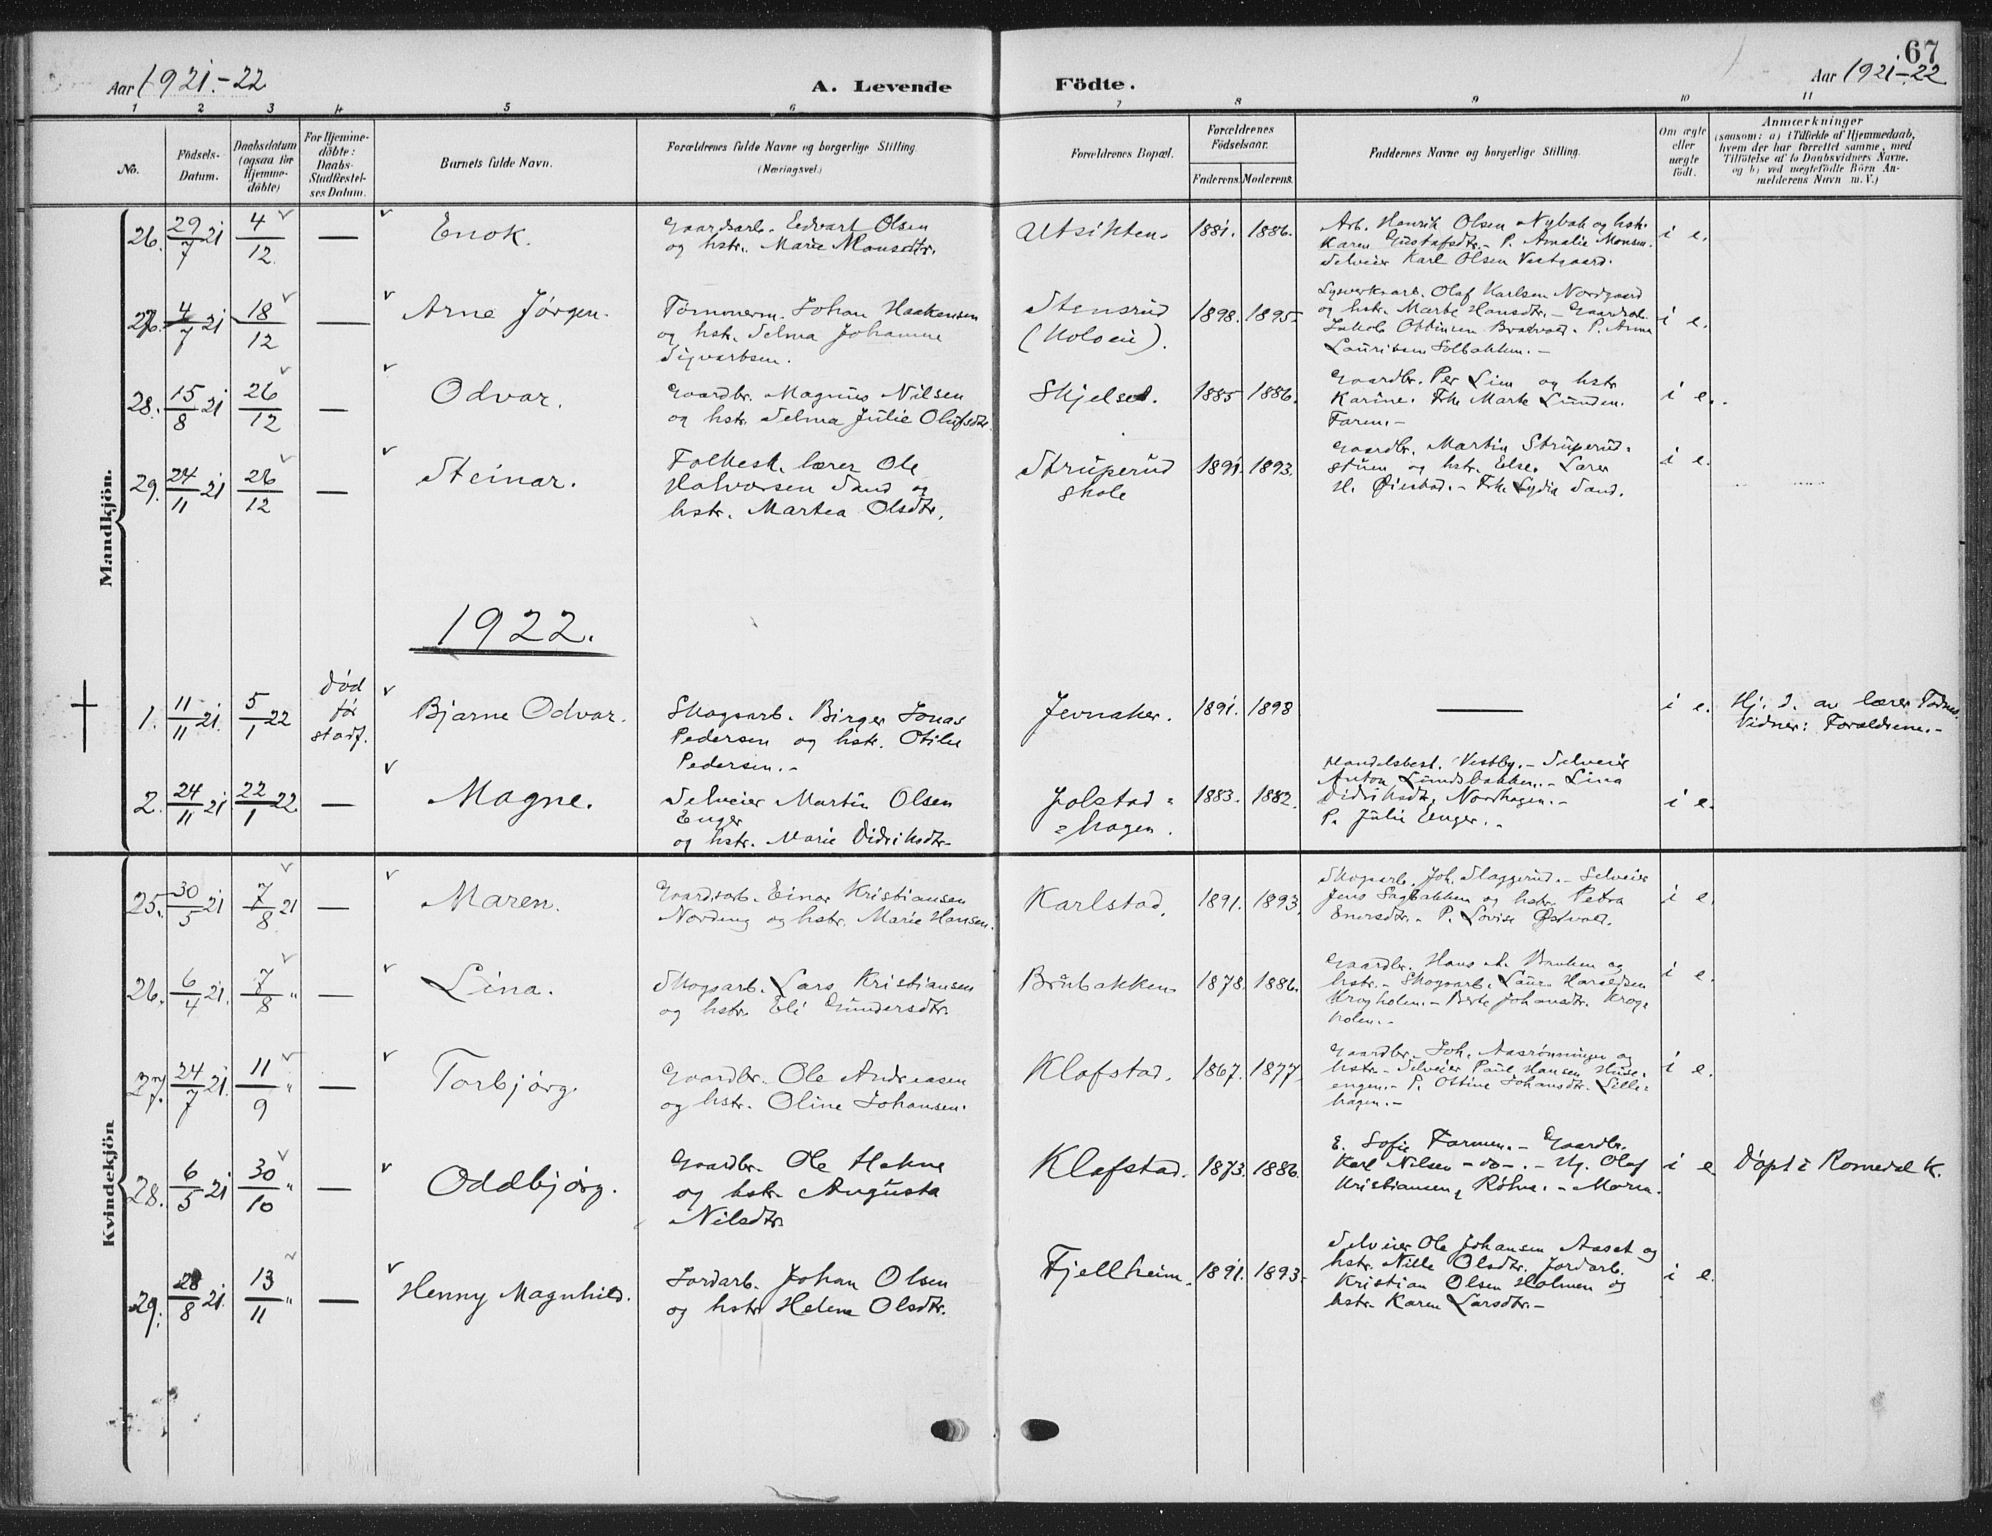 67
Aar 1921-22
A. Levende
Födte.
Aar 1921-22
1 2 3 4 5 6 7 8 9 10 11
No.
Födsels-
Datum.
Daabsdatum
(ogsaa for
Hjemme-
döbte)
For Hjemme-
döbte:
Daabs-
Stadfæstel-
ses Datum.
Barnets fulde Navn.
Forældrenes fulde Navne og borgerlige Stilling
(Næringsvei.)
Forældrenes Bopæl.
Forældrenes
Födselsaar.
Faderens. Moderens.
Faddernes Navne og borgerlige Stilling.
Om ægte
eller
uægte
födt.
Anmærkninger
(saasom: a) i Tilfælde af Hjemmedaab,
hvem der har forrettet samme, med
Tilföielse af to Daabsvidners Navne.
og b) ved uægtefödte Börn An-
melderens Navn m. V.)
Mandkjön.
26. 29/7 21 4/12 — Enok.
Gaardsarb. Edvart Olsen
og hstr. Marie Monsdtr.
Utsikten. 1881. 1886.
Arb. Henrik Olsen Nybak og hstr.
Karen Gustafsdtr. - P. Amalie Monsen.
Selveier Karl Olsen Vestgaard.
i e.
27. 4/7 21 18/12 — Arne Jørgen.
Tømmerm. Johan Haakensen
og hstr. Selma Johanne
Sigvartsen.
Stensrud
(Holoen). 1898. 1895.
Olaf Karlsen Nordgaard
og hstr. Marte Hansdtr. - Gaardsb.
Jakob Ottinsen P. Anna
Lauritsen Solbakken. -
i e.
28. 15/8 21 26/12 — Odvar.
Gaardbr. Magnus Nilsen
og hstr. Selma Julie Olufsdtr.
Skjelset. 1885 1886.
Gaardbr. Per Lien og hstr
Karine. Frk. Marte Lunden.
Faren. -
i e.
29. 24/11 21 26/12 — Steinar.
Folkesk. lærer Ole
Halvorsen Sand og
hstr. Martea Olsdtr.
Struperud
skole 1891. 1893.
Gaardbr. Martin Struperud-
stuen og hstr. Else. Lærer
H. Øiestad. - Frk Lydia Sand.
i e.
1922.
1. 11/11 21. 5/1 22
Død
før
stadf.
Bjarne Odvar.
Skogsarb. Birger Jonas
Pedersen og hstr. Otilie
Pedersen. -
Jevnaker. 1891. 1898 —
i e.
Hj. d. av lærer
Vidner: Forældrene. -
2. 24/11 21 22/1 22. — Magne.
Selveier Martin Olsen
Enger
og hstr. Marie Didriksdtr.
Jolstad-
hagen. 1883. 1882.
Handelsbest. Vestby. - Selveier
Anton Lundsbakken. - Lina
Didriksdtr. Nordhagen. -
P. Julie Enger. -
i e.
Kvindekjön
25. 30/5 21 7/8 21 — Maren.
Gaardsarb. Einar Kristiansen
Nordeng og hstr. Marie Hansen.
Karlstad. 1891. 1893.
Skogsarb. Joh. Slaggerud. - Selveier
Jens Sagbakken og hstr. Petra
Enersdtr. - P. Lovise Østvold.
i e.
26. 6/4 21. 7/8 " — Lina.
Skogsarb. Lars Kristiansen
og hstr. Eli Gundersdtr.
Brubakken. 1878. 1886.
Gaardbr. Hans A. Bruken og
hstr. - Skogsarb. Laur. Haraldsen
Krogholen. - Berte Johansdtr. Krog-
holen. -
i e.
27. 24/7 21. 11/9 " — Torbjørg.
Gaardbr. Ole Andreasen
og hstr. Oline Johansen.
Klofstad. 1867. 1877.
Gaardbr. Joh. Aasrønningen og
hstr. - Selveier Paul Hansen Huse-
engen. - P. Ottine Johansdtr. Lille-
hagen. -
i e.
28. 6/5 21 30/10 " — Oddbjørg.
Gaardbr. Ole Hohne
og hstr. Augusta
Nilsdtr.
Klofstad. 1873. 1886.
E. Sofie Farmen. - Gaardbr.
Karl Nilsen - do -. - Ug. Olaf
Kristiansen, Røhne. - Moren.
i e
Døpt i Romedal K.
29. 28/8 21. 13/11 " — Henny Magnhild.
Jordarb. Johan Olsen
og hstr Helene Olsdtr.
Fjellheim. 1891. 1893.
Selveier Ole Johansen Aaset og
hstr. Nille Olsdtr. Jordarb.
Kristian Olsen Holmen og
hstr. Karen Larsdtr. -
i e.